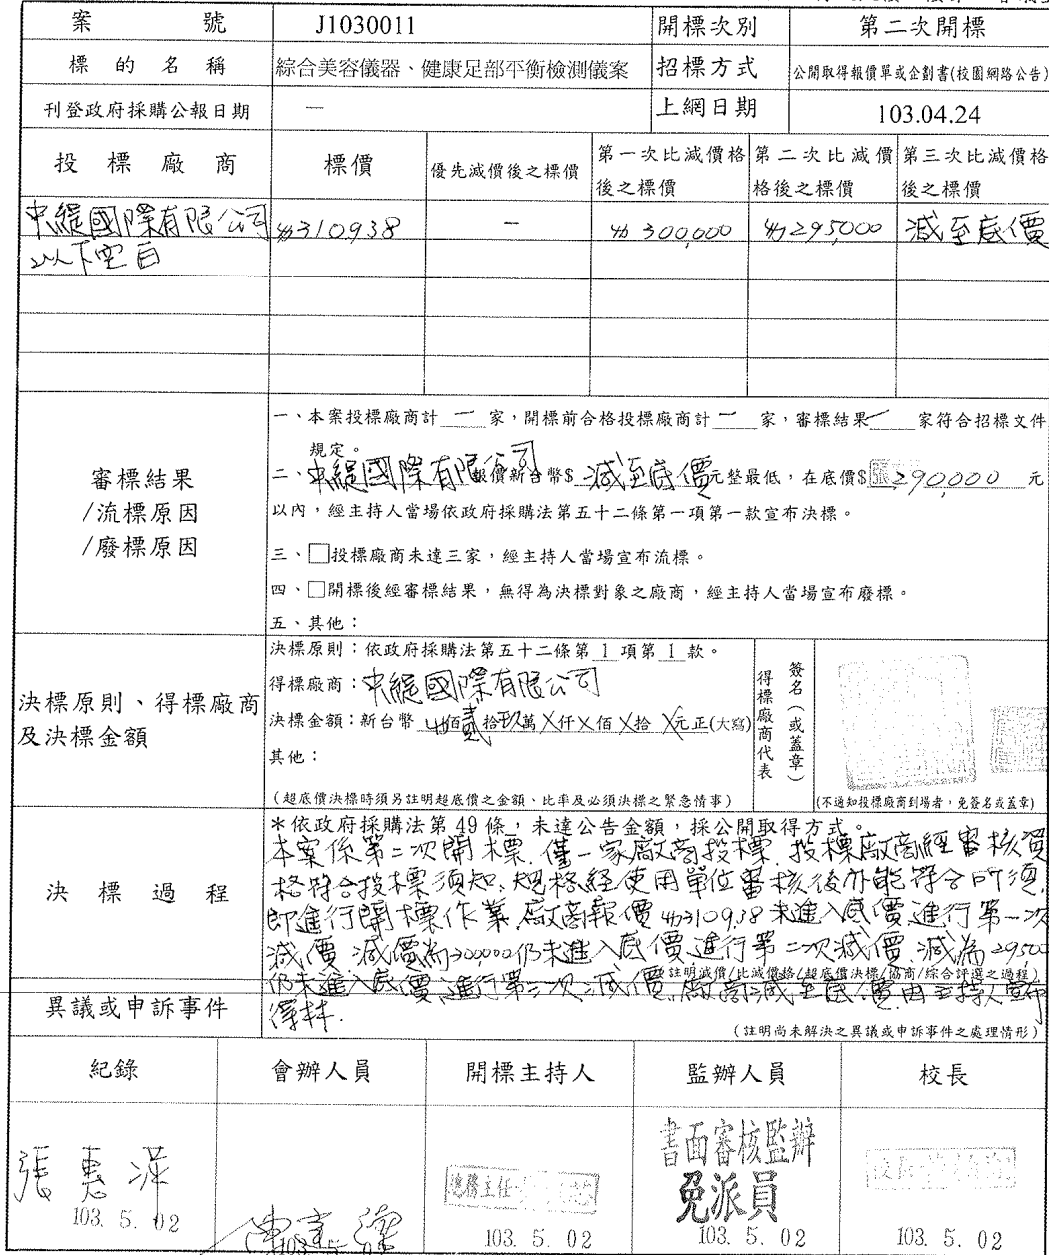 案 號
J1030011
開標次別
第二次開標
標 的 名 稱
綜合美容儀器、健康足部平衡檢測儀案
招標方式
公開取得報價單或企劃書(校園網路公告)
刊登政府採購公報日期
—
上網日期
103.04.24
投 標 廠 商
標價
優先減價後之標價
第一次比減價格後之標價
第二次比減價格後之標價
第三次比減價格後之標價
緹國際有限公司
310,938
—
300,000
295,000
減至底價
以下空白
審標結果
/流標原因
/廢標原因
一、本案投標廠商計 一 家,開標前合格投標廠商計 一 家,審標結果 一 家符合招標文件
規定。
二、緹國際有限公司報價新台幣$ 減至底價 元整最低,在底價$ 290,000 元
以內,經主持人當場依政府採購法第五十二條第一項第一款宣布決標。
三、□投標廠商未達三家,經主持人當場宣布流標。
四、□開標後經審標結果,無得為決標對象之廠商,經主持人當場宣布廢標。
五、其他:
決標原則、得標廠商
及決標金額
決標原則:依政府採購法第五十二條第 1 項第 1 款。
得標廠商:緹國際有限公司
決標金額:新台幣 佰貳拾玖萬X仟X佰X拾X元正(大寫)
其他:
(超底價決標時須另註明超底價之金額、比率及必須決標之緊急情事)
得標廠商代表
簽名(或蓋章)
(不通知投標廠商到場者,免簽名或蓋章)
決 標 過 程
*依政府採購法第 49 條,未達公告金額,採公開取得方式。
本案係第二次開標,僅一家廠商投標,投標廠商經審核資
格符合投標須知,規格經使用單位審核後亦能符合所須,
即進行開標作業,廠商報價310938未進入底價,進行第一次
減價,減價為300,000仍未進入底價,進行第二次減價,減為29500
(註明減價/比減價格/超底價決標/協商/綜合評選之過程)
仍未進入底價,進行第三次減價,廠商減至底價,由主持人宣布
得標.
異議或申訴事件
(註明尚未解決之異議或申訴事件之處理情形)
紀錄
會辦人員
開標主持人
監辦人員
校長
張惠萍
103. 5. 02
總務主任
103. 5. 02
書面審核監辦
免派員
103. 5. 02
校長
103. 5. 02